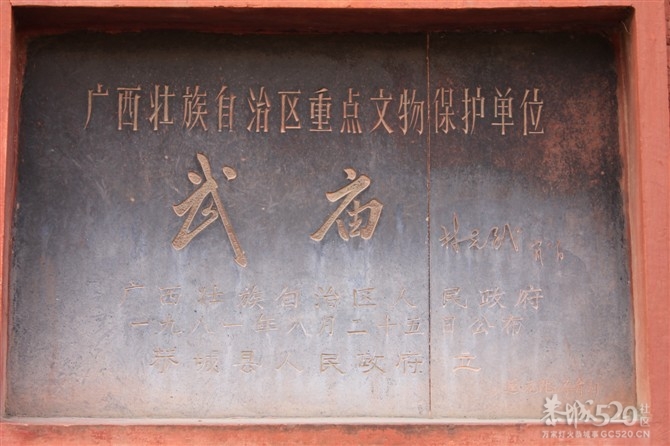 广西壮族自治区重点文物保护单位
武庙
广西壮族自治区人民政府
一九八一年八月二十五日公布
恭城县人民政府 立
恭城520社区
万家灯火恭城事GC520.CN